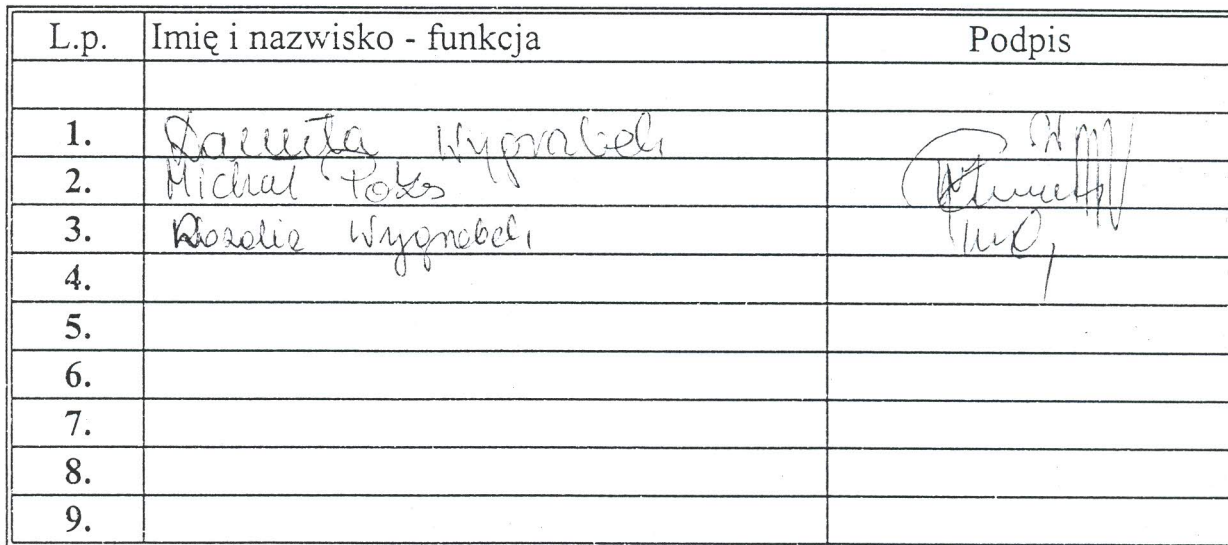 L.p. Imię i nazwisko - funkcja Podpis
1. Wygrabek
2. Michał
3. Rozalia Wygrabek
4.
5.
6.
7.
8.
9.